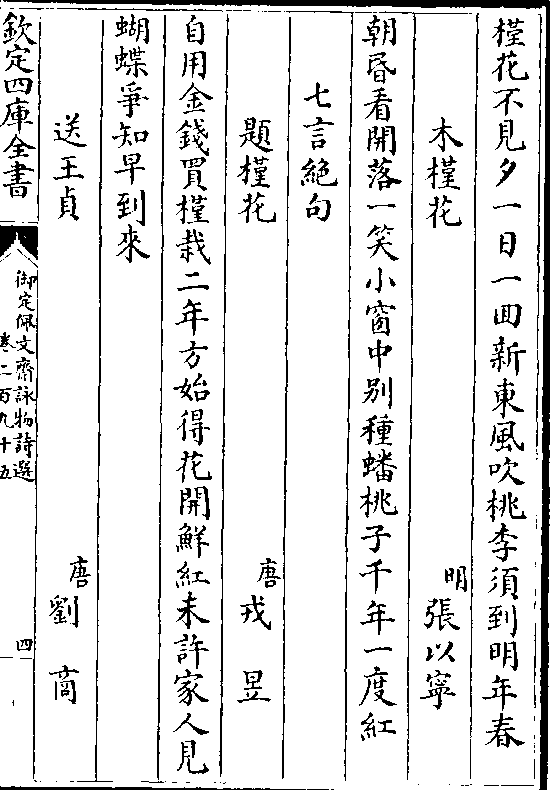 槿花不見夕一日一回新東風吹桃李須到明年春
木槿花 明 張以寧
朝昏看開落一笑小窗中別種蟠桃子千年一度紅
七言絕句
題槿花 唐 戎昱
自用金錢買槿栽二年方始得花開鮮紅未許家人見
蝴蝶爭知早到來
送王貞 唐 劉商
欽定四庫全書
御定佩文齋詠物詩選
卷二百九十五
四